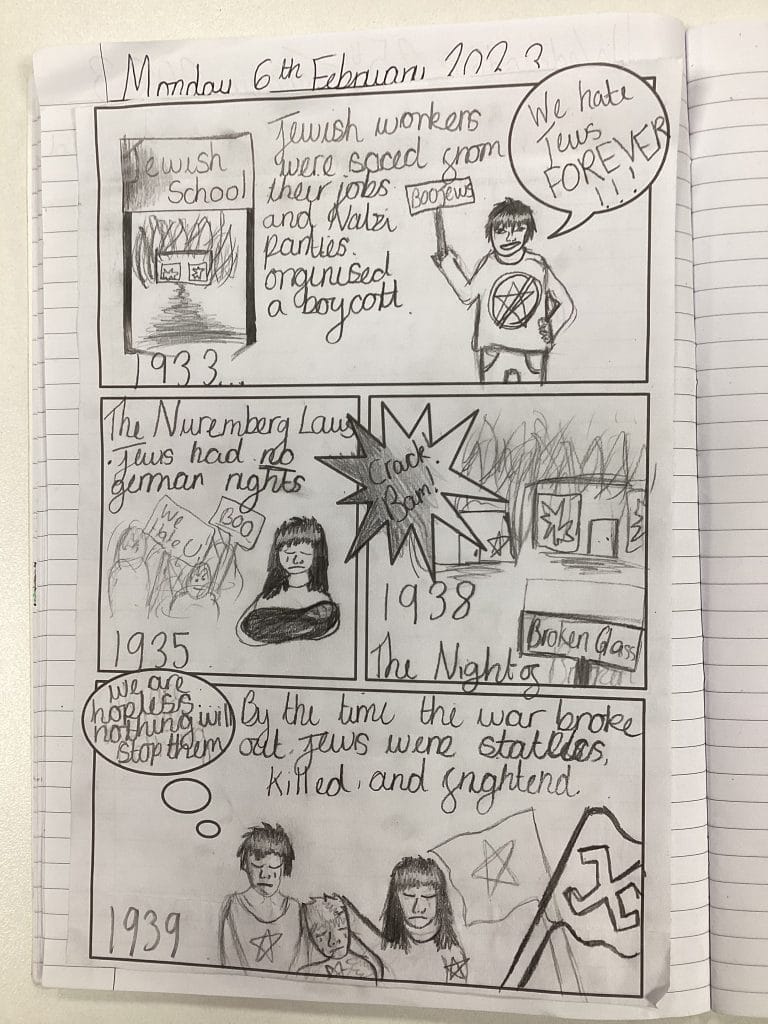 Monday 6th February 2023
Jewish
School
Jewish workers
were saced from
their jobs
and Natzi
parties.
orginised
a boycott.
1933...
Boo Jews
We hate
Jews
FOREVER
!!!
The Nuremberg Laws
Jews had no
german rights
We
hate U!
Boo
1935
Crack!
Bam!
1938
The Night of
Broken Glass
we are
hopless
nothing will
stop them
By the time the war broke
out. Jews were
killed, and frightend.
1939